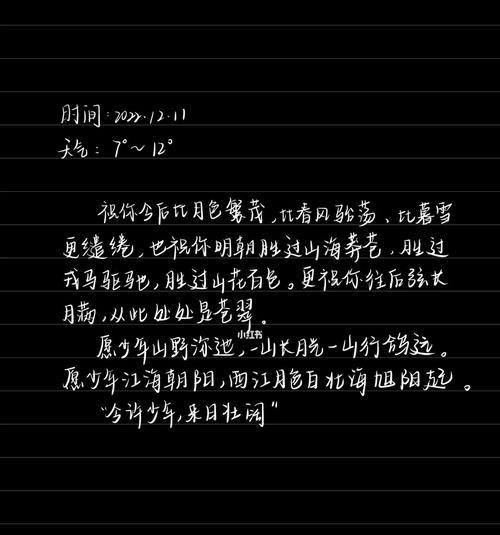 时间:2022.12.11
天气:7°~12°
祝你今后比月色繁茂,比春风骀荡、比暮雪
更缱绻,也祝你明朝胜过山海莽苍,胜过
戎马驱驰,胜过山花石色。更祝你往后弦长
月满,从此处处是苍翠。
小红书
愿少年山野弥池,一山长脱一山行鸽远。
愿少年江海朝阳,西江月色白北海旭阳起。
“今许少年,来日壮阔”